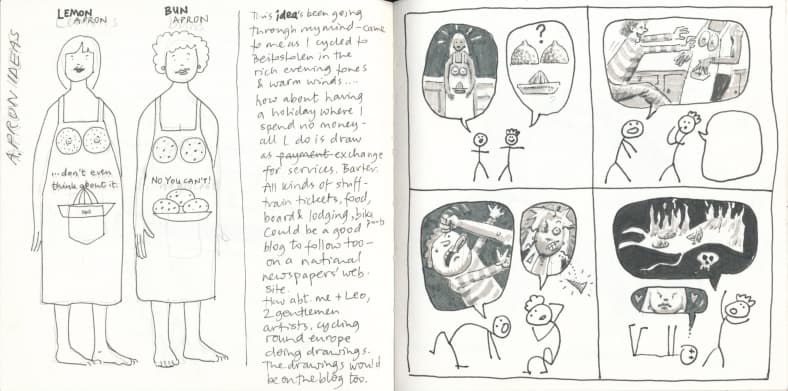 APRON IDEAS
LEMON
APRON
...don't even
think about it.
BUN
APRON
NO YOU CAN'T!
This idea's been going
through my mind - came
to me as I cycled to
in the
rich evening tones
& warm winds...
how about having
a holiday where I
spend no money -
all I do is draw
as payment exchange
for services. Barter.
All kinds of stuff -
train tickets, food,
board & lodging, bike
parts
Could be a good
blog to follow too -
on a national
newspapers' web.
site.
How abt. me + Leo,
2 gentlemen
artists, cycling
round europe
doing drawings.
The drawings would
be on the blog too.
?